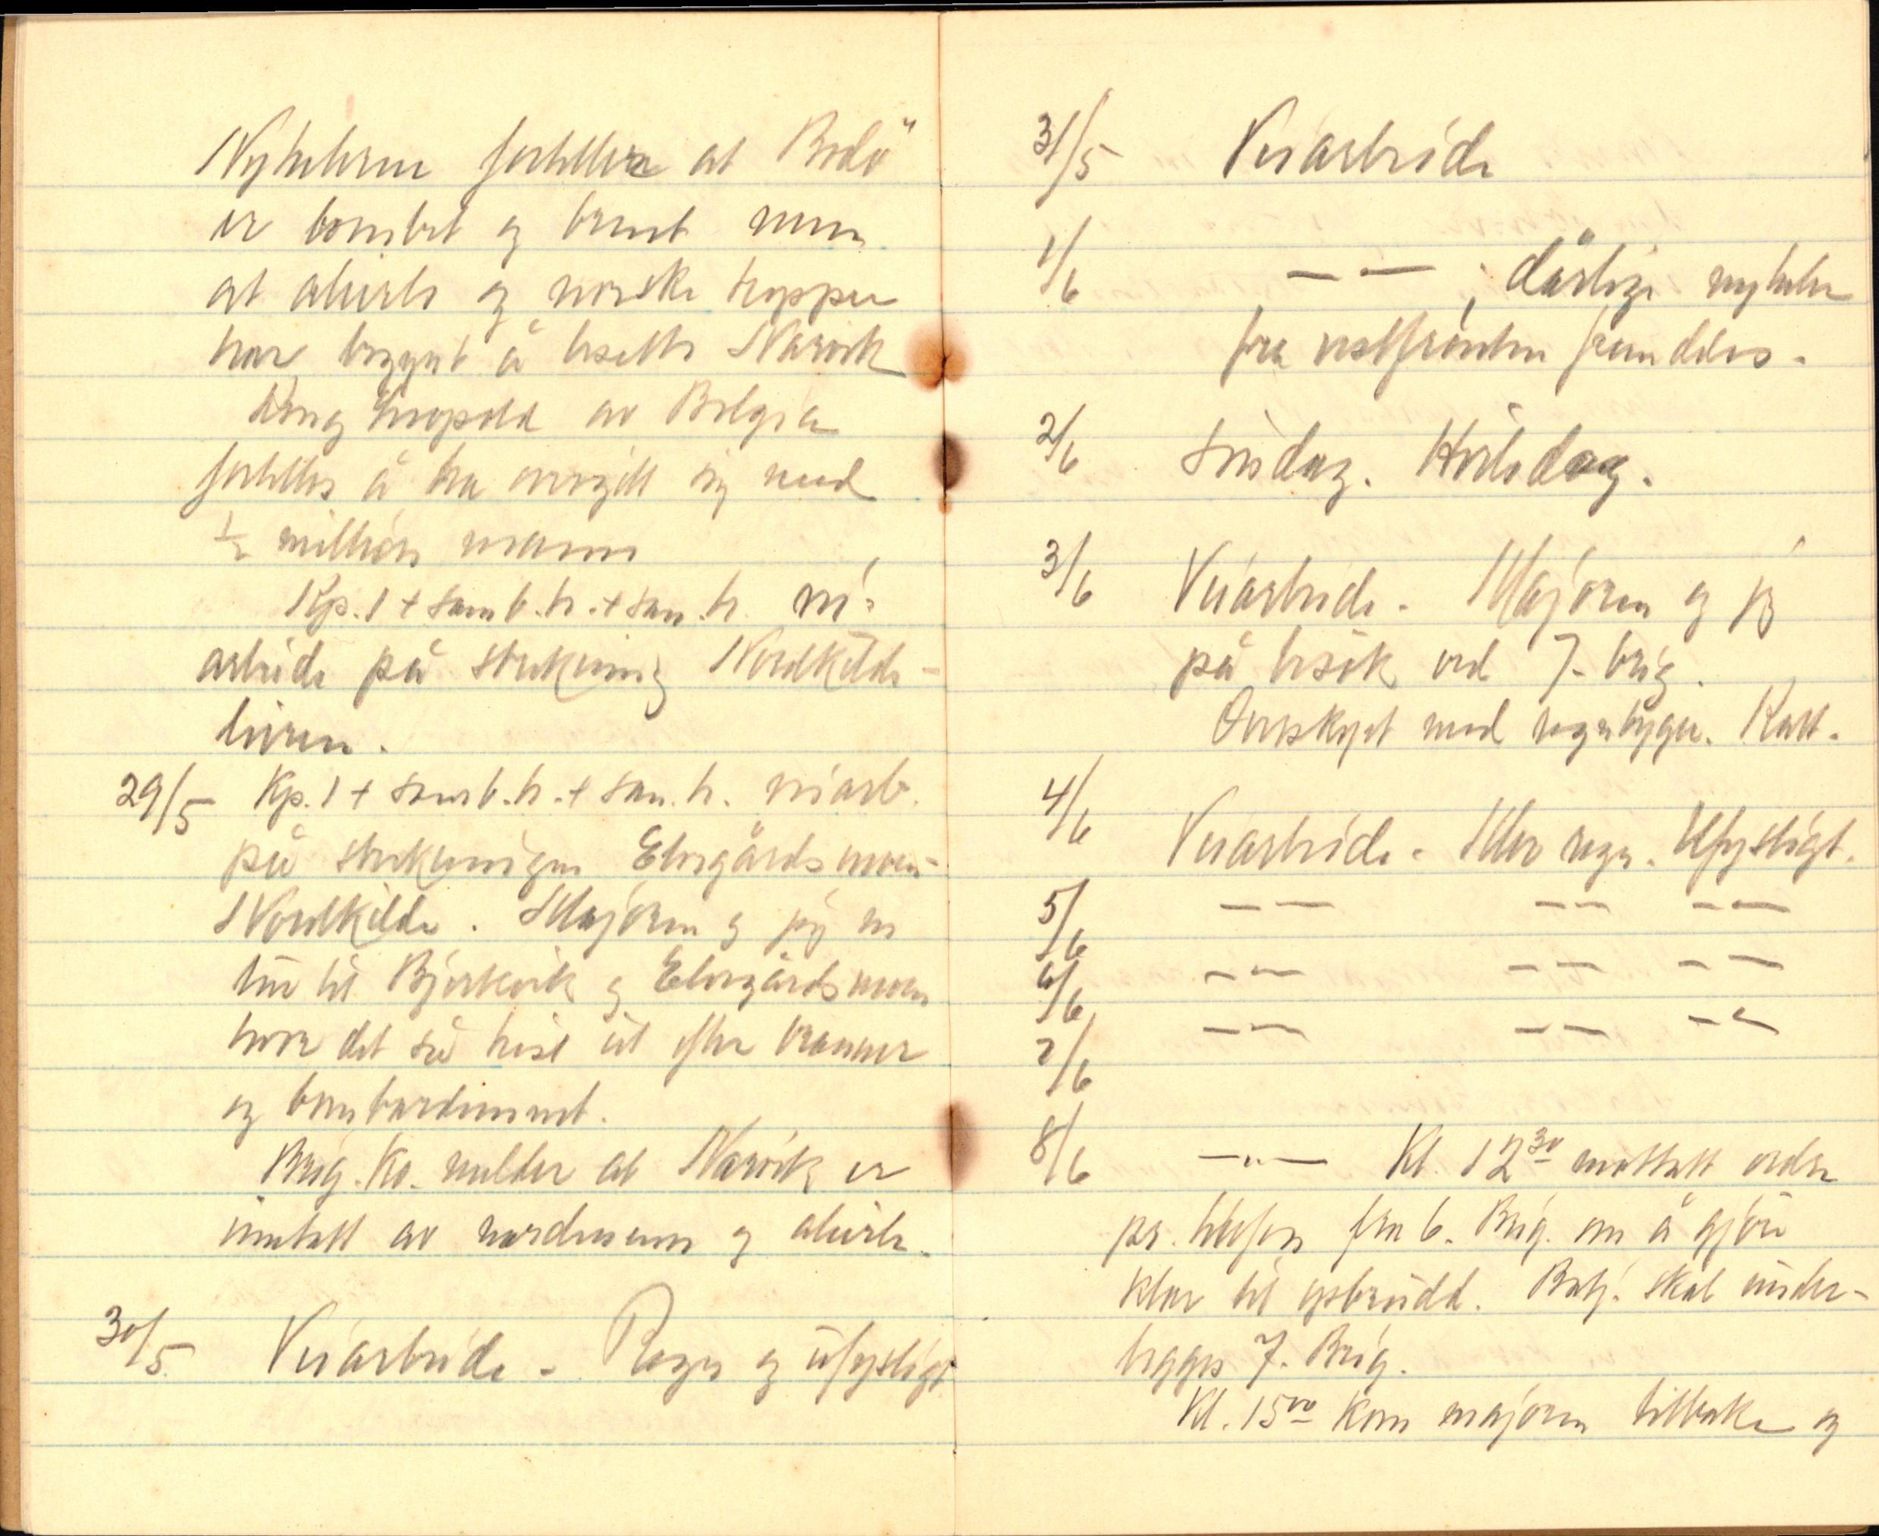 Nyheterne forteller at Bodö
er bombet og brent men
at alierte og norske tropper
har begynt å besette Narvik
Kong Leopold av Belgia
fortelles å ha overgitt sig med
½ million mann
Kp. 1 + samb.tr. + san.tr. vei-
arbeide på strekning Nordkilde-
leiren.
29/5 Kp. 1 + samb.tr. + san.tr. veiarb.
på strekningen Elvegårdsmoen-
Nordkilde. Majoren og jeg en
tur til Bjerkvik og Elvegårdsmoen
hvor det så trist ut efter branner
og bombardement.
Brig.ko. melder at Narvik er
inntatt av nordmenn og alierte.
30/5 Veiarbeide - Regn og ufyseligt
31/5 Veiarbeide
1/6 — " — , dårlige nyheter
fra vestfronten fremdeles.
2/6 Söndag. Hviledag.
3/6 Veiarbeide. Majoren og jeg
på besök ved 7. brig.
Overskyet med regnbyger. Kaldt.
4/6 Veiarbeide. Mer regn. Ufyseligt.
5/6 — " — — " — — " —
6/6 — " — — " — — " —
7/6 — " — — " — — " —
8/6 — " — Kl. 12³⁰ mottatt ordre
pr. telefon fra 6. Brig. om å gjöre
klar til opbrudd. Batj. skal under-
legges 7. Brig.
Kl. 15⁰⁰ kom majoren tilbake og